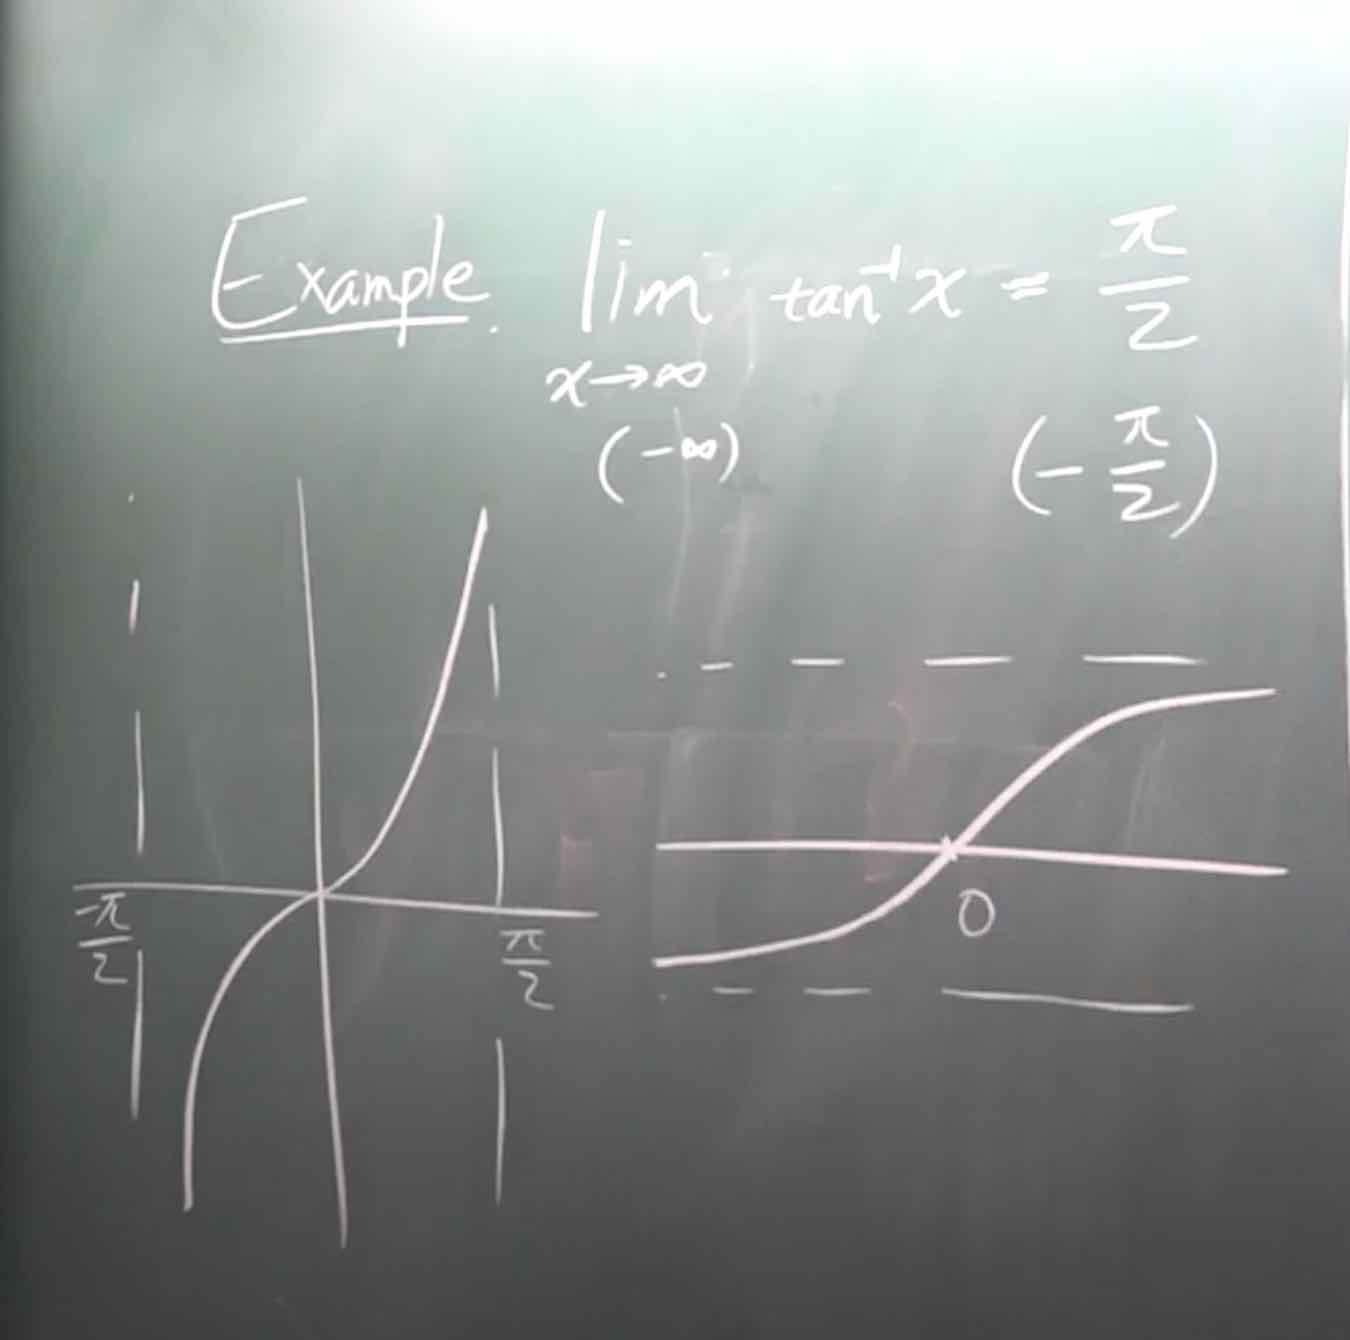 Example. lim tan⁻¹x = π/2
x→∞
(-∞) (-π/2)
-π/2 π/2 0